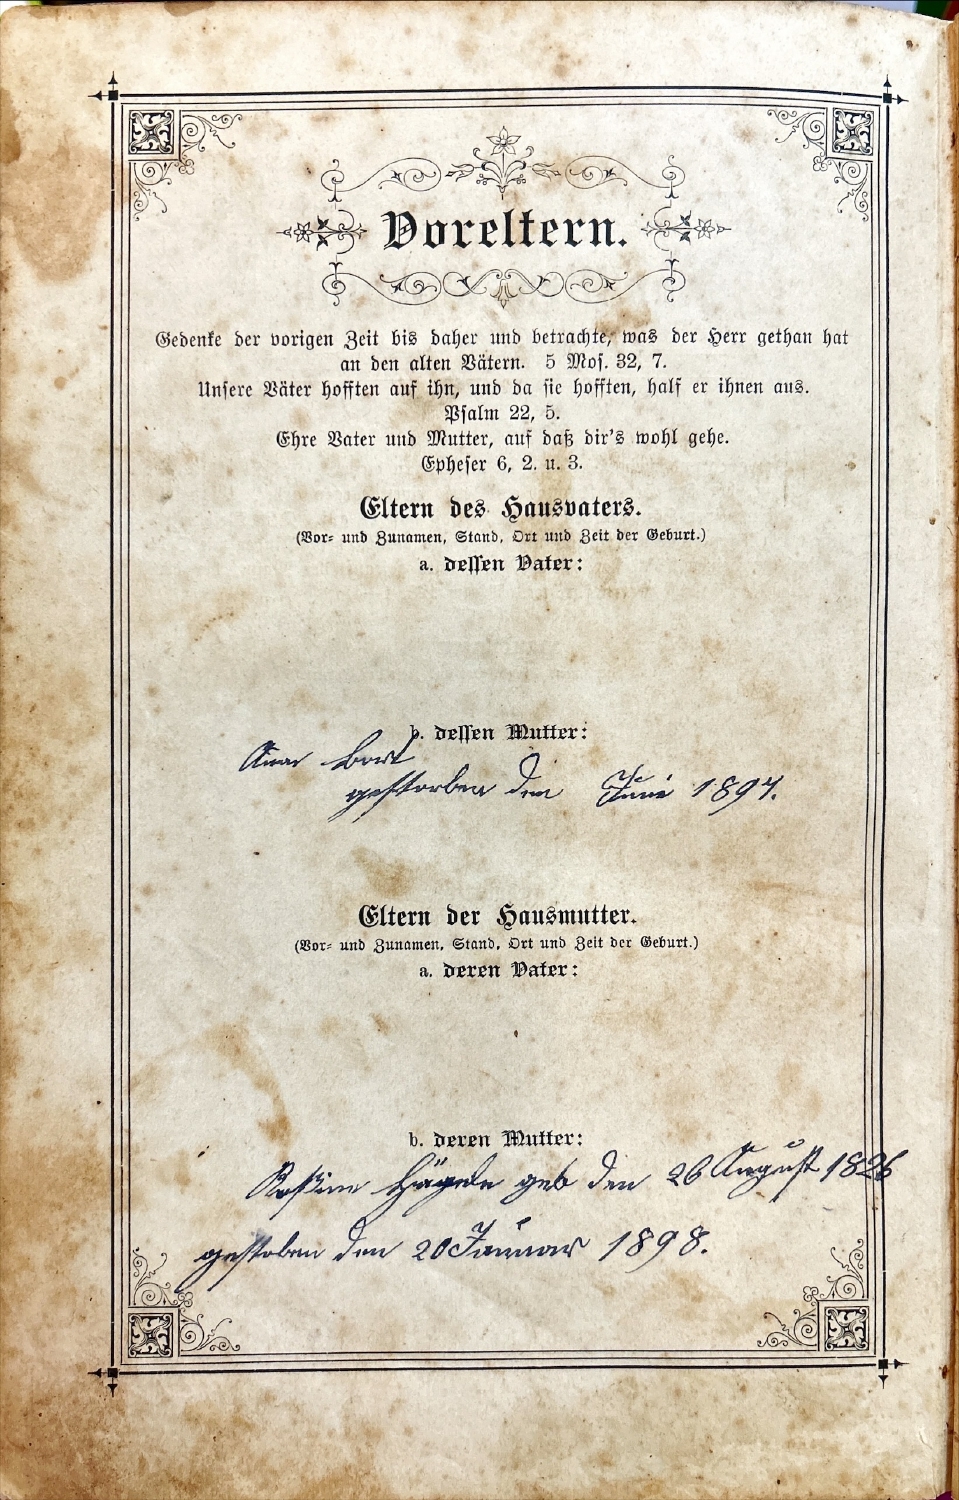 Voreltern.
Gedenke der vorigen Zeit bis daher und betrachte, was der Herr gethan hat
an den alten Vätern. 5 Mos. 32, 7.
Unsere Väter hofften auf ihn, und da sie hofften, half er ihnen aus.
Psalm 22, 5.
Ehre Vater und Mutter, auf daß dir's wohl gehe.
Epheser 6, 2. u. 3.
Eltern des Hausvaters.
(Vor- und Zunamen, Stand, Ort und Zeit der Geburt.)
a. dessen Vater:
b. dessen Mutter:
Anna
gestorben den Juni 1897.
Eltern der Hausmutter.
(Vor- und Zunamen, Stand, Ort und Zeit der Geburt.)
a. deren Vater:
b. deren Mutter:
Rosine Hägele geb den 26 August 1826
gestoben den 20 Januar 1898.